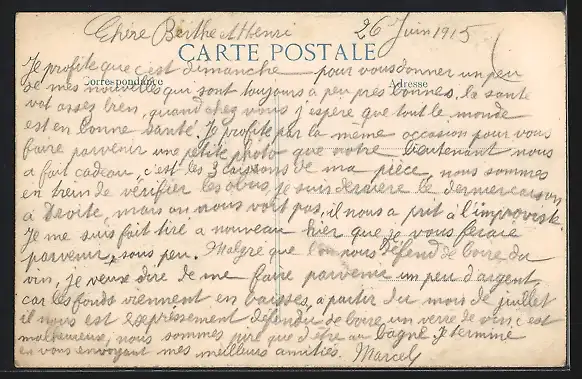 Chère Berthe et Henri 26 Juin 1915
CARTE POSTALE
Correspondance Adresse
Je profite que c'est dimanche pour vous donner un peu
de mes nouvelles qui sont toujours à peu près bonnes. la santé
vat assez bien, quand chez vous j'espère que tout le monde
est en bonne santé. Je profite par la même occasion pour vous
faire parvenir une petite photo que notre lieutenant nous
a fait cadeau, c'est les 3 caissons de ma pièce, nous sommes
en train de vérifier les obus, je suis derrière le dernier caisson
à Droite, mais on nous voit pas, il nous a prit à l'improviste.
Je me suis fait tiré a nouveau hier que je vous ferai
parvenir, sous peu. Malgré que l'on nous défend de boire du
vin, je veux dire de me faire parvenir un peu d'argent
car les fonds viennent en baisses, a partir du mois de juillet
il nous est expressement défendu de boire un verre de vin, c'est
malheureux, nous sommes pire que d'être au bagne. Je termine
en vous envoyant mes meilleurs amitiés. Marcel